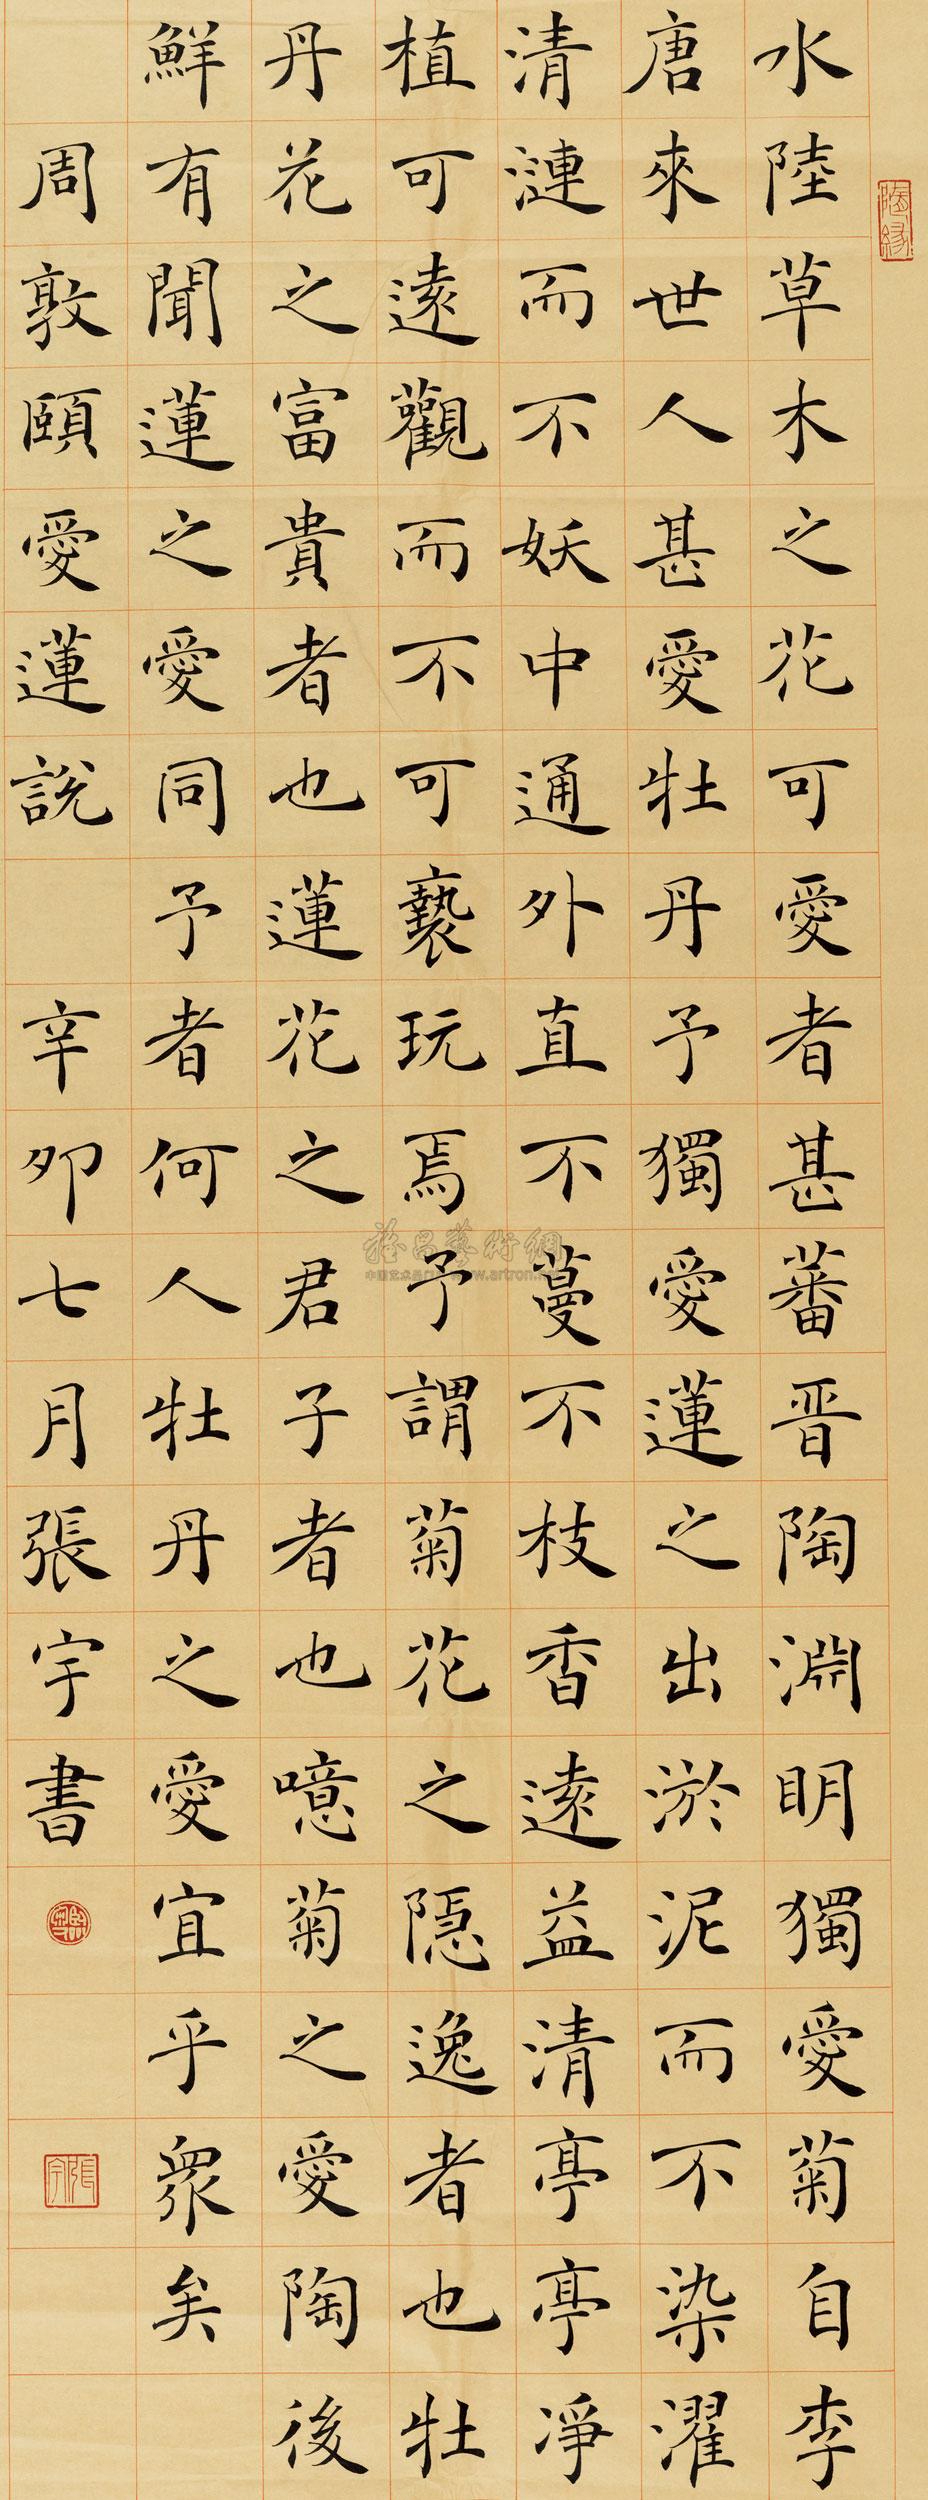 水陸草木之花可愛者甚蕃晋陶淵明獨愛菊自李
唐來世人甚愛牡丹予獨愛蓮之出淤泥而不染濯
清漣而不妖中通外直不蔓不枝香遠益清亭亭淨
植可遠觀而不可褻玩焉予謂菊花之隱逸者也牡
丹花之富貴者也蓮花之君子者也噫菊之愛陶後
鮮有聞蓮之愛同予者何人牡丹之愛宜乎衆矣
周敦頤愛蓮說 辛卯七月張宇書
陶緣
張宇
雅昌藝術網